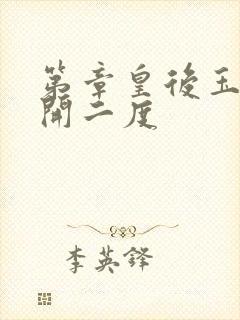 第章皇後玉
開二度
李英鋒